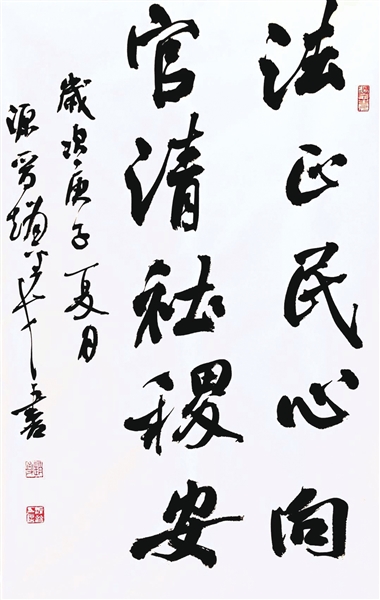 法正民心向
官清社稷安
歲次庚子夏月
源
书